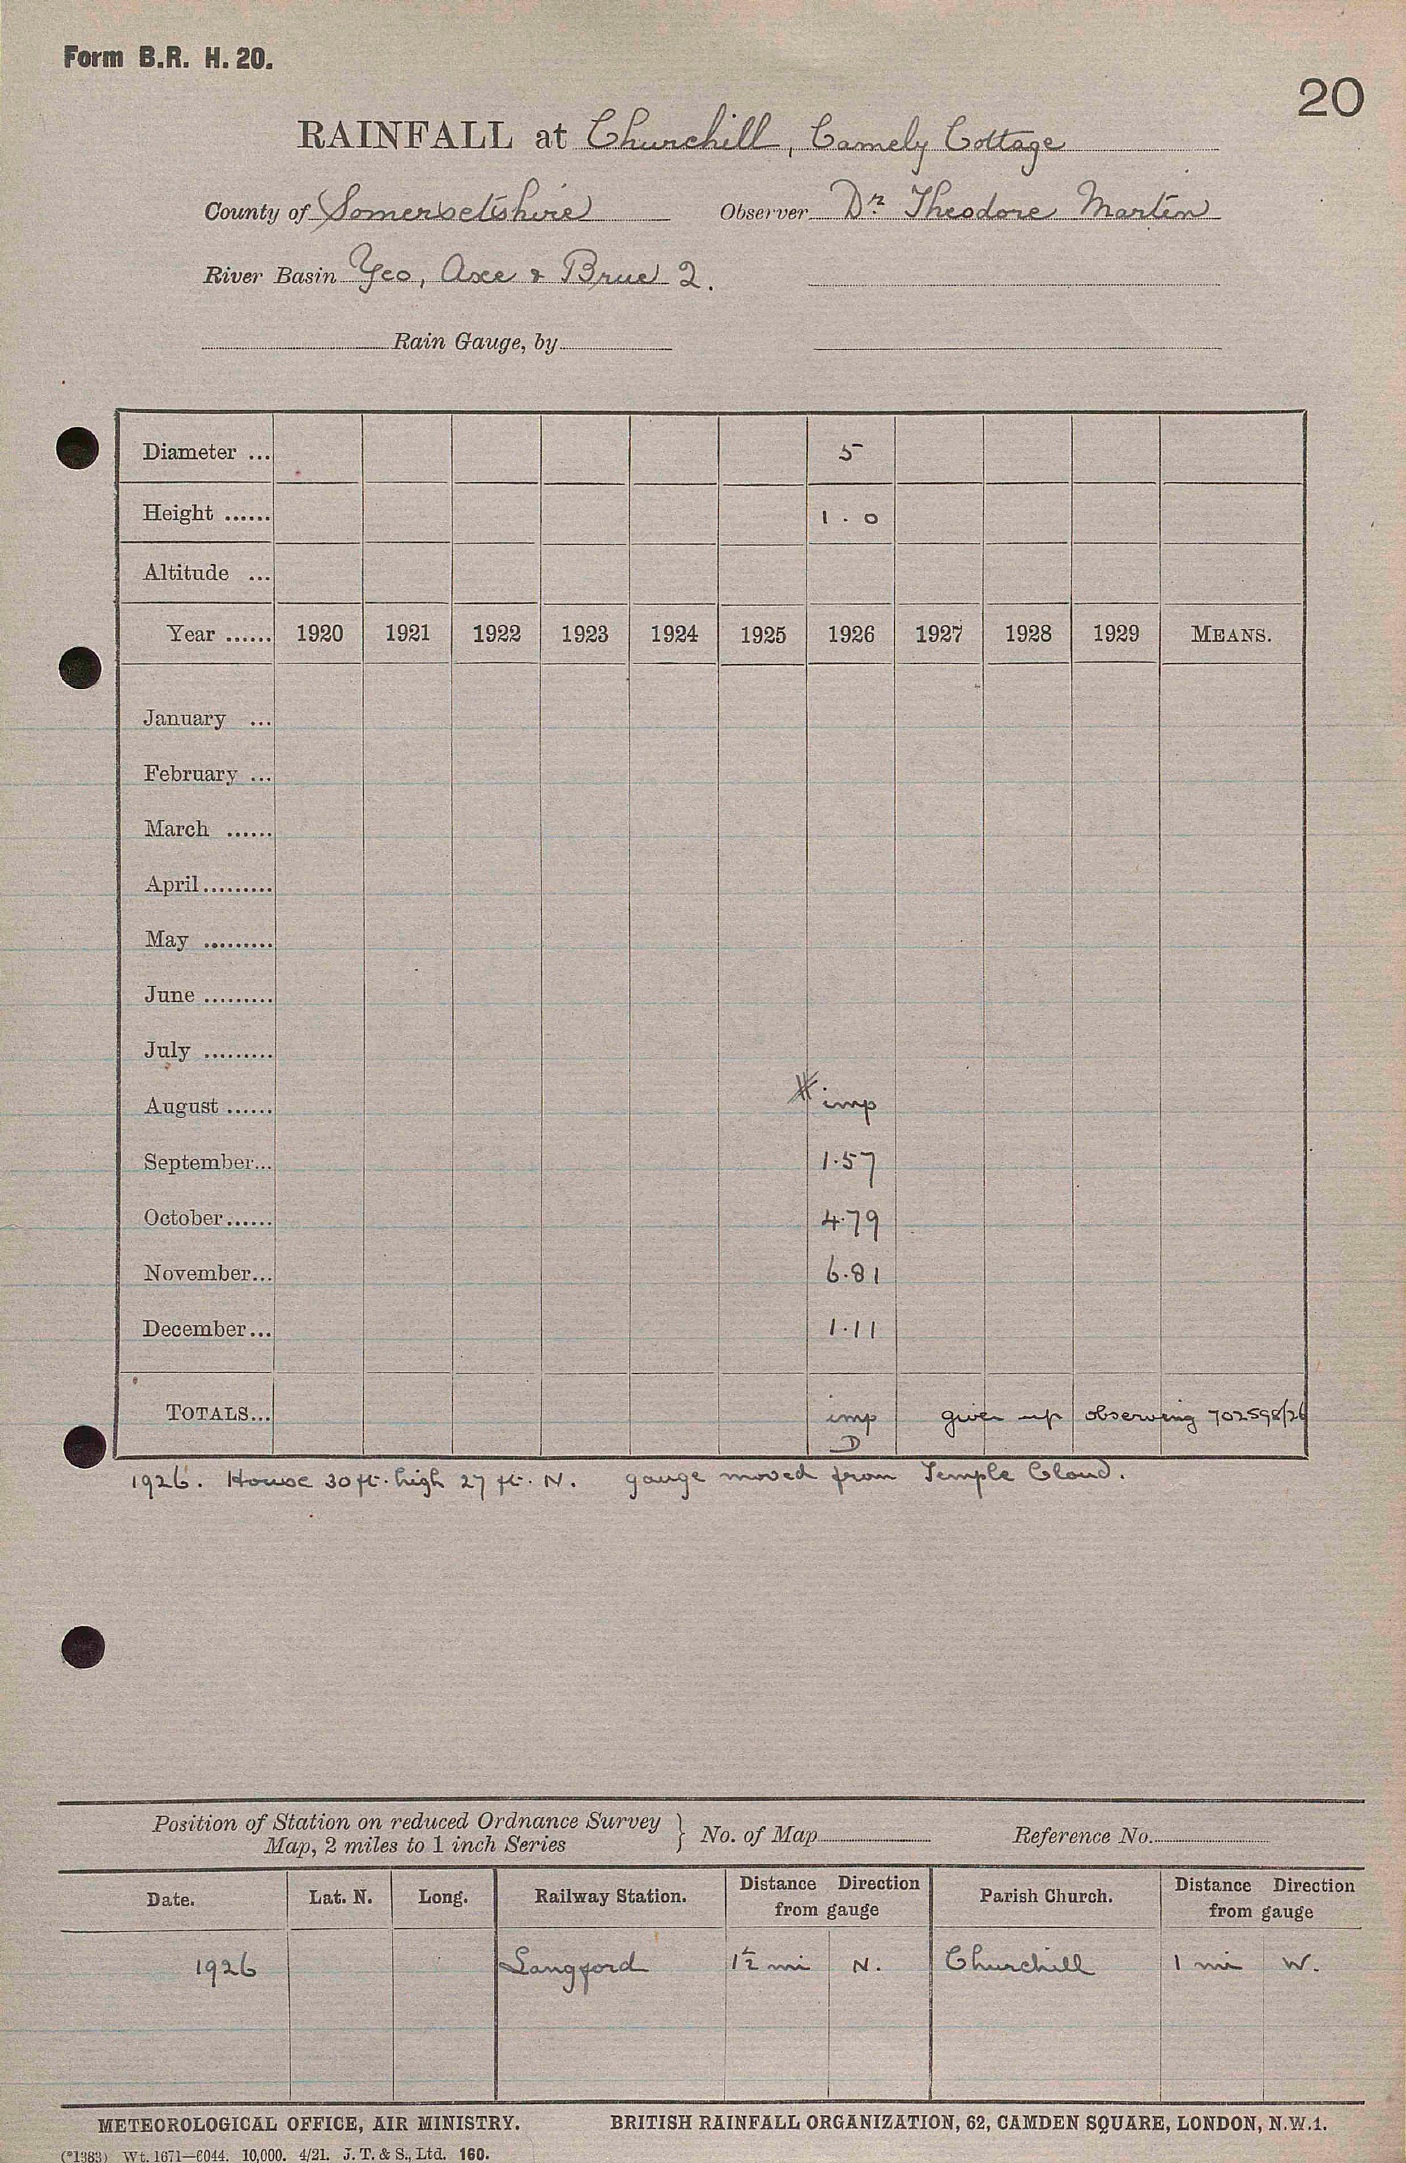 Form B.R. H. 20.
20
RAINFALL at Churchill, Camely Cottage
County of Somersetshire Observer Dr. Theodore Martin
River Basin Yeo, Axe & Brue 2.
Rain Gauge, by
Diameter ... 5
Height ...... 1.0
Altitude ...
Year ...... 1920 1921 1922 1923 1924 1925 1926 1927 1928 1929 MEANS.
January ...
February ...
March ......
April.........
May .........
June .........
July .........
August ...... imp
September... 1.57
October...... 4.79
November... 6.81
December... 1.11
TOTALS... imp given up observing 702598/26
D
1926. House 30 ft. high 27 ft. N. gauge moved from Temple Cloud.
Position of Station on reduced Ordnance Survey
Map, 2 miles to 1 inch Series } No. of Map Reference No.
Date. Lat. N. Long. Railway Station. Distance Direction from gauge Parish Church. Distance Direction from gauge
1926 Langford 1½ mi N. Churchill 1 mi W.
METEOROLOGICAL OFFICE, AIR MINISTRY. BRITISH RAINFALL ORGANIZATION, 62, CAMDEN SQUARE, LONDON, N.W.1.
(*1383) Wt. 1671—6044. 10,000. 4/21. J. T. & S., Ltd. 160.